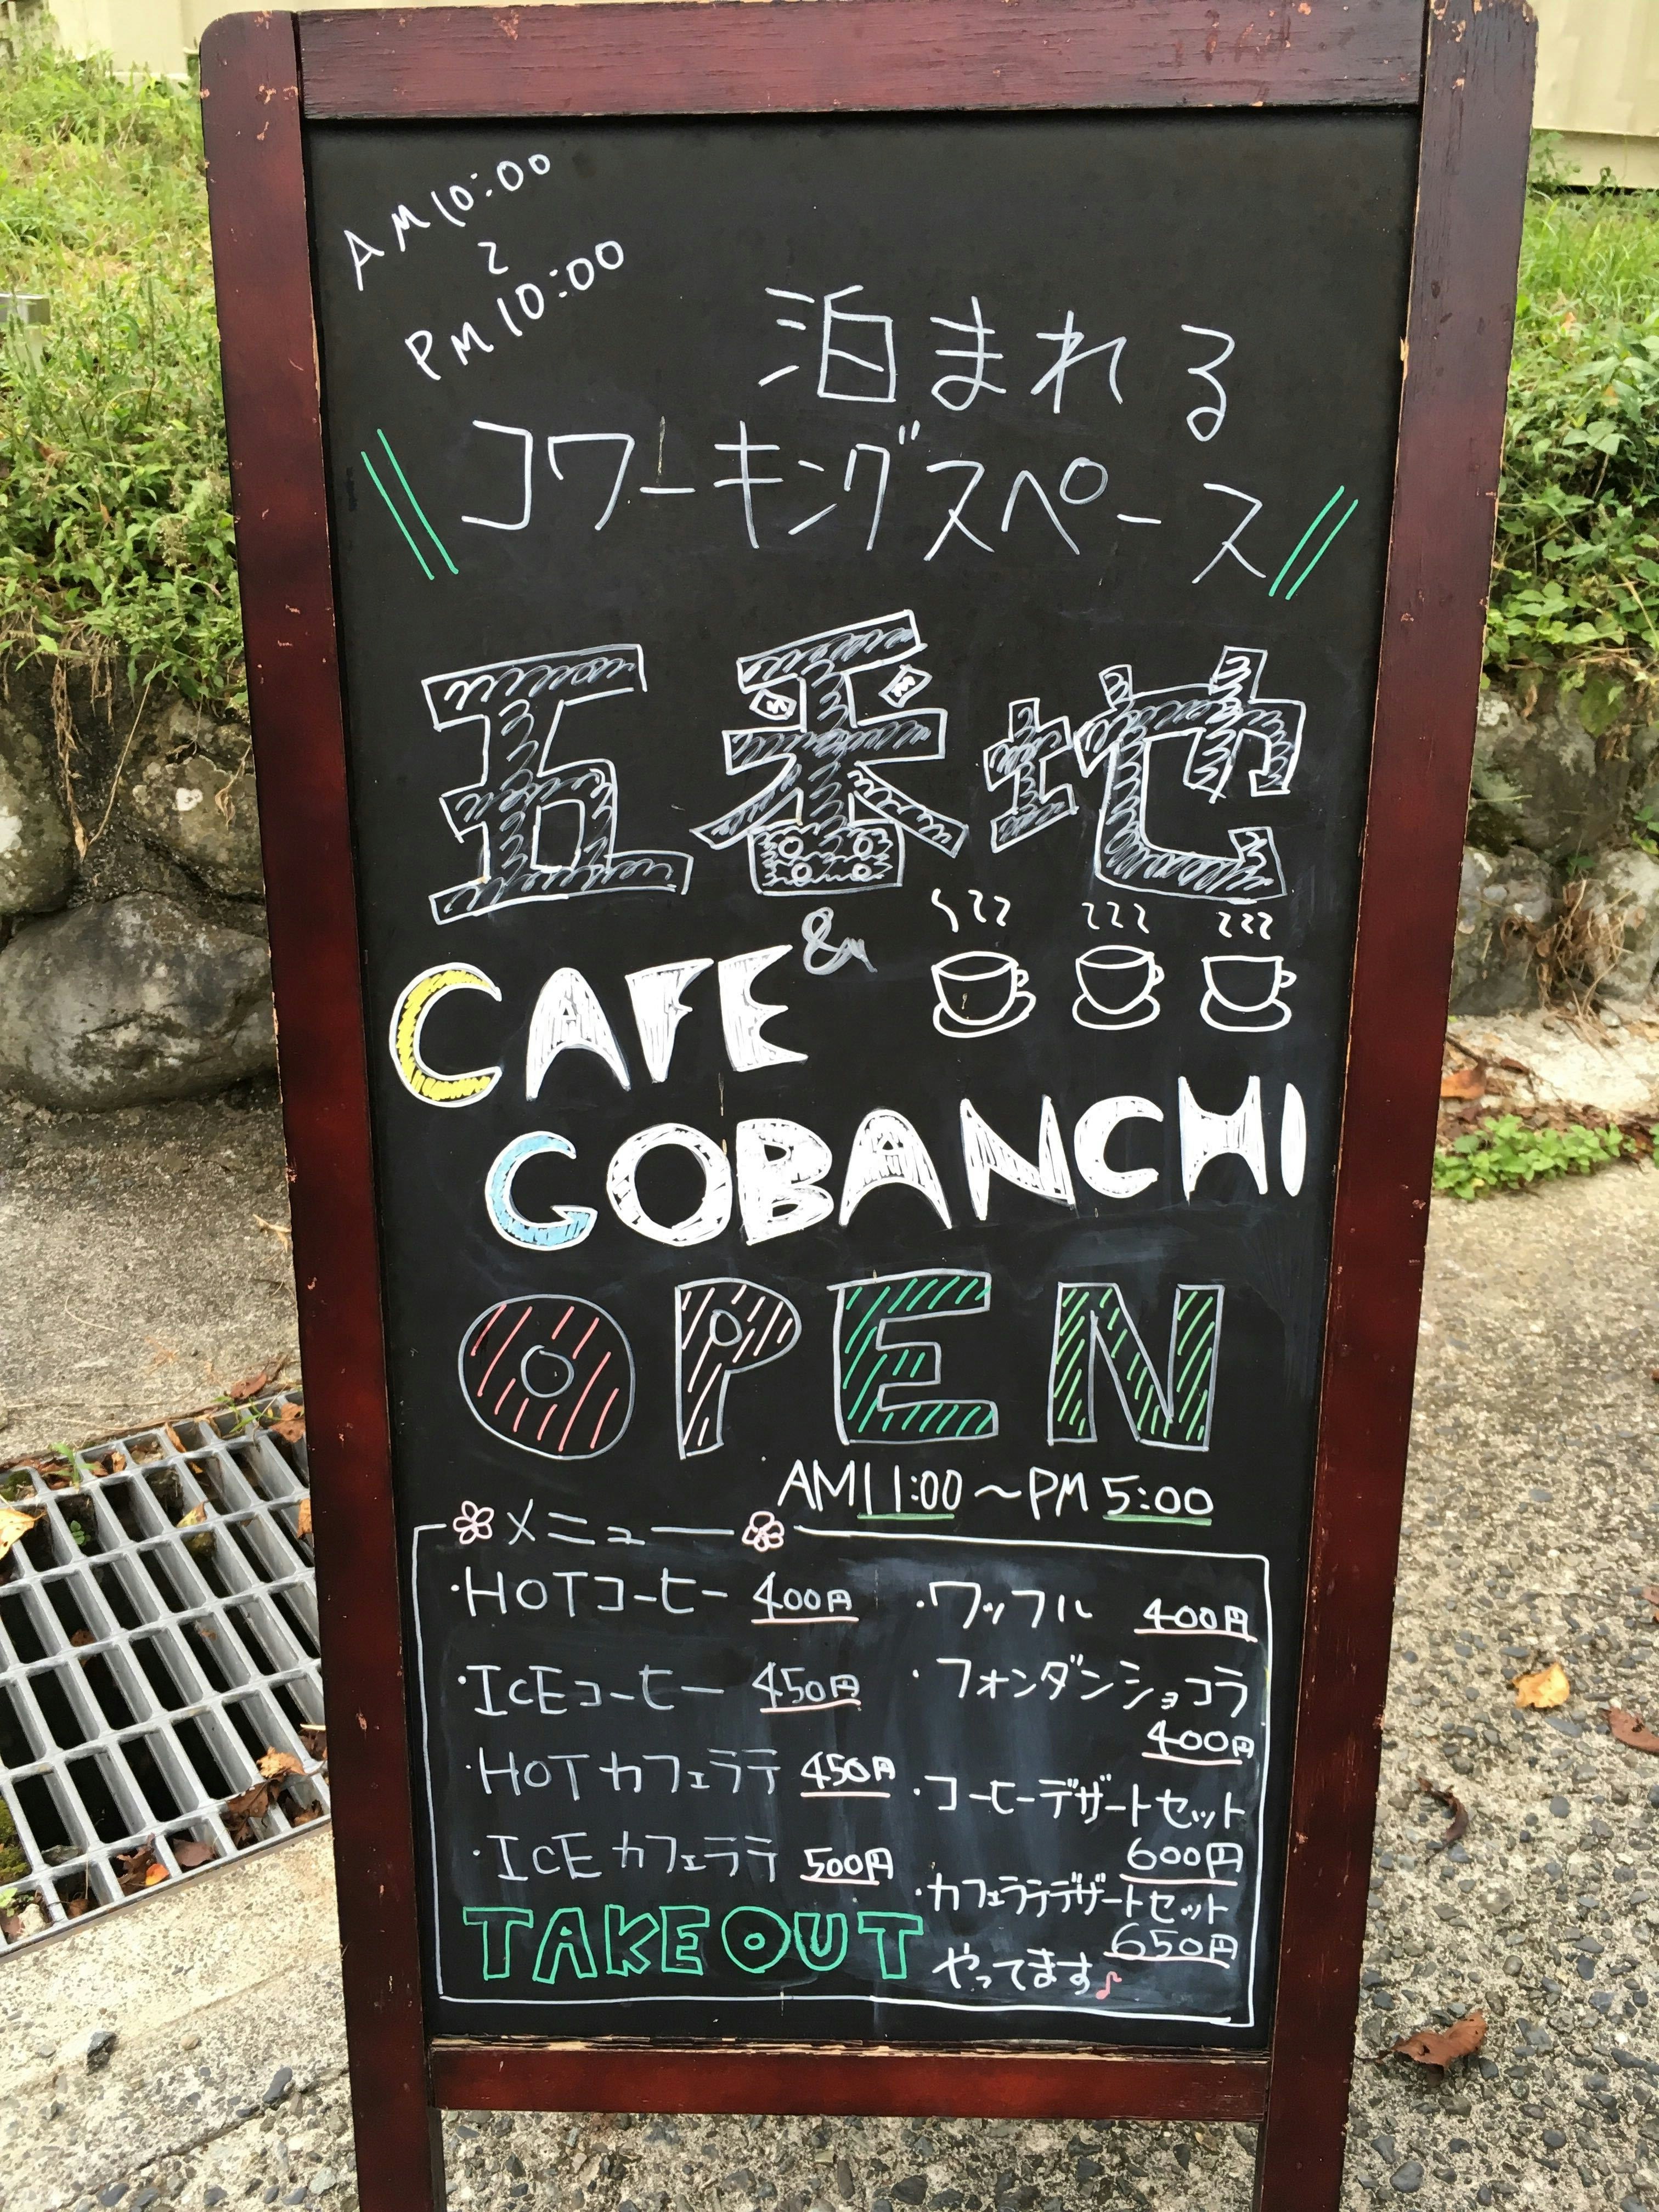 AM10:00
〜
PM10:00
泊まれる
コワーキングスペース
五番地
&
CAFE
GOBANCHI
OPEN
AM11:00〜PM5:00
メニュー
・HOTコーヒー 400円
・ICEコーヒー 450円
・HOTカフェラテ 450円
・ICEカフェラテ 500円
・ワッフル 400円
・フォンダンショコラ
400円
・コーヒーデザートセット
600円
・カフェラテデザートセット
650円
TAKEOUT やってます♪